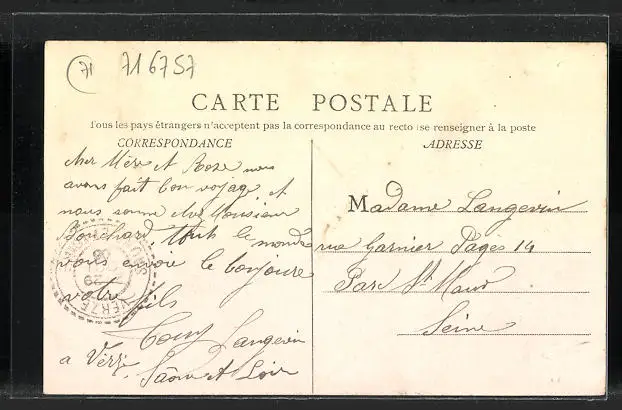 71 71 6757
CARTE POSTALE
Tous les pays étrangers n'acceptent pas la correspondance au recto (se renseigner à la poste
CORRESPONDANCE
ADRESSE
cher Mère et Roze nous
avons fait bon voyage et
nous somme chez Monsieur
Bouchard, tout le monde
vous envoie le bonjour
votre fils
Langevin
a Verzé
Saône et Loir
Madame Langevin
rue Garnier Pages 14
Parc St Maur
Seine
VERZÉ